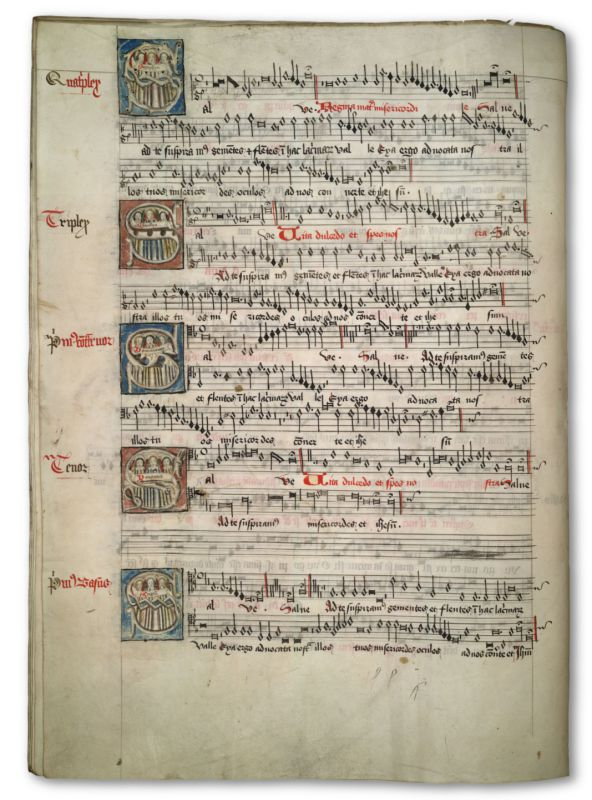 Quatplex
al ve. Regina mat misericordi e Salue
ad te suspira m gemetes + fletes i hac lacrimar val le Eya ergo aduocata nos tra il
los tuos misericor des oculos ad nos con uerte et ihesu
Triplex
al ve Vita dulcedo et spes nos tra Sal ve
Ad te suspira m gemetes et fletes i hac lacrimar valle Eya ergo aduocata no
stra illos tu os mi se ricordes o culos ad nos conuer te et ihe sum
al ve. Sal ue. Ad te suspiram geme tes
et flentes i hac lacrimar val le Eya ergo aduoca ta nos tra
illos tu os misericordes conuer te et ihe su
Tenor
al ve Vita dulcedo et spes no stra Salue
Ad te suspiram misericordes et ihesu.
al ve. Salue Ad te suspiram gementes et flentes i hac lacrimar
Valle Eya ergo aduocata illos tuos misericordes oculos ad nos et